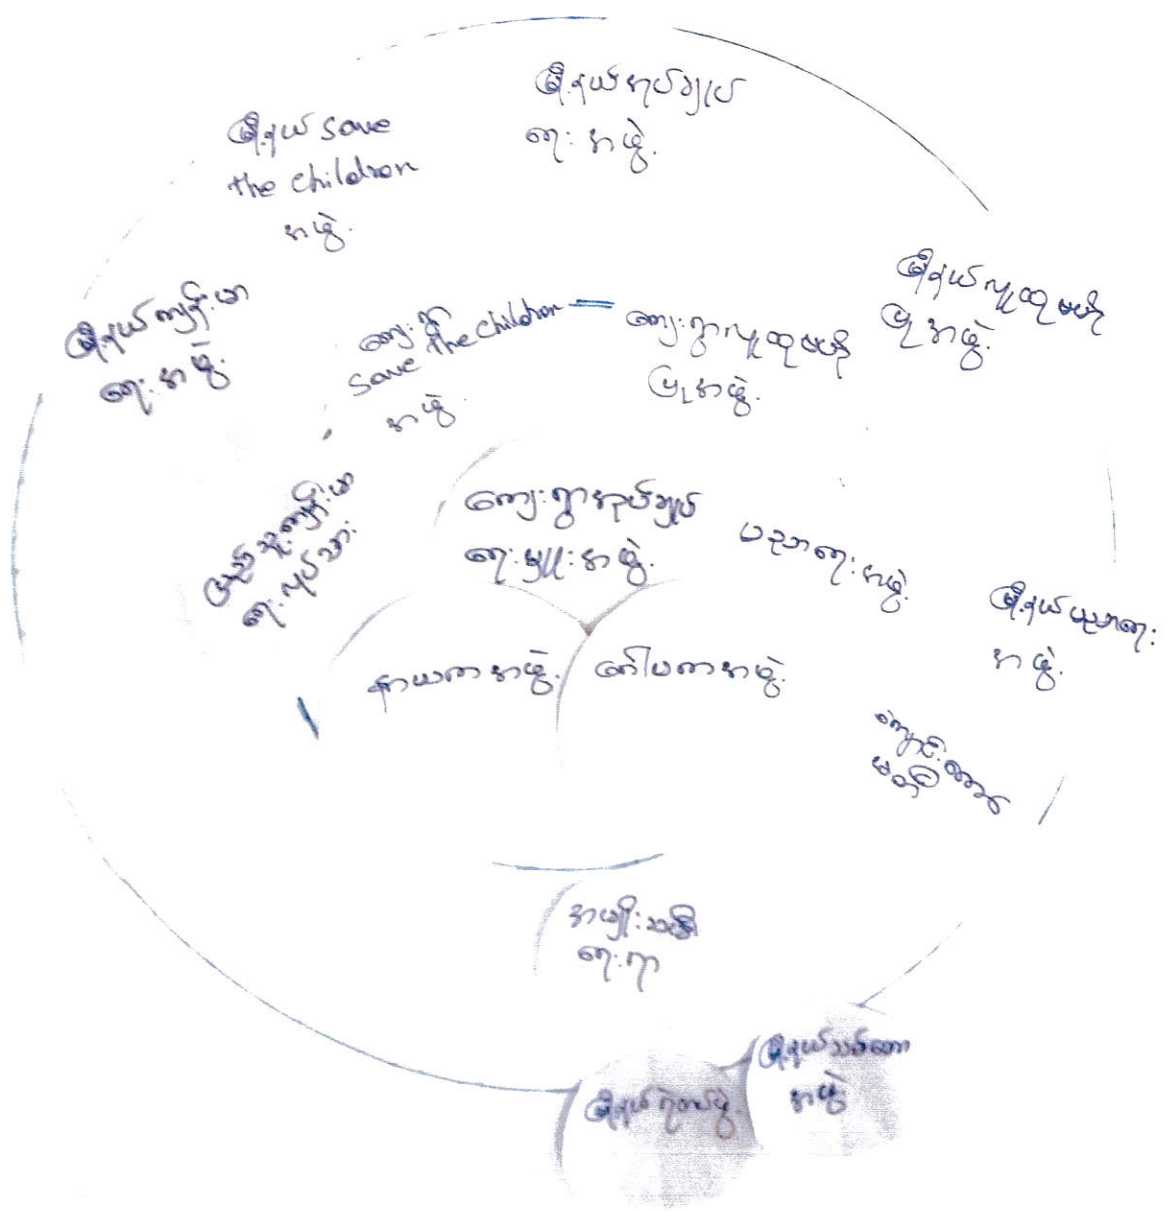 မြို့နယ်အုပ်ချုပ်
ရေးအဖွဲ့
မြို့နယ် save
the children
အဖွဲ့
မြို့နယ်လူထုဗဟို
ပြုအဖွဲ့
မြို့နယ်ကျန်းမာ
ရေးအဖွဲ့
ကျေးရွာ
save the children
အဖွဲ့
ကျေးရွာလူထုဗဟို
ပြုအဖွဲ့
ပြည်သူ့ကျန်းမာ
ရေးလုပ်သား
ကျေးရွာအုပ်ချုပ်
ရေးမှူးအဖွဲ့
ပညာရေးအဖွဲ့
မြို့နယ်ပညာရေး
အဖွဲ့
နာယကအဖွဲ့
ဂေါပကအဖွဲ့
အမျိုးသမီး
ရေးရာ
မြို့နယ်သစ်တော
အဖွဲ့
မြို့နယ်ရဲတပ်ဖွဲ့